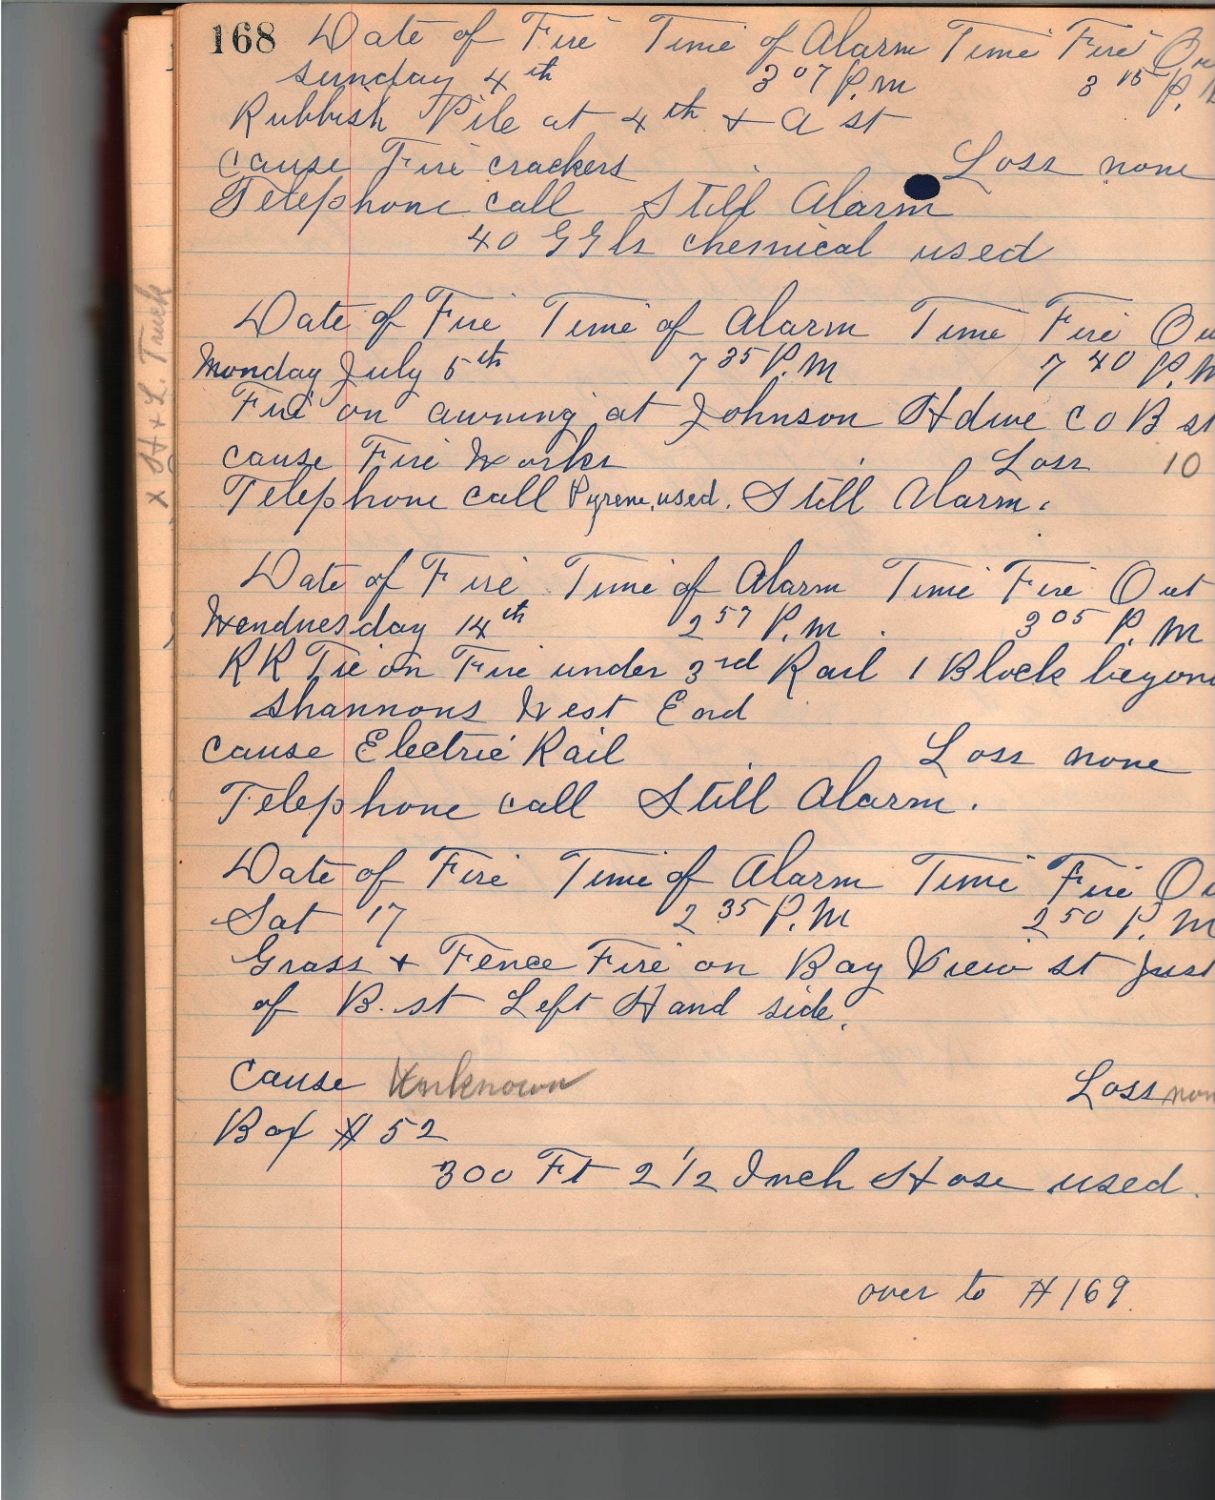 168 Date of Fire Time of Alarm Time Fire
Sunday 4th 3 07 P.M 3 15 P.
Rubbish Pile at 4th + A st
cause Fire crackers Loss none
Telephone call Still Alarm
40 GGls chemical used
Date of Fire Time of Alarm Time Fire Ou
Monday July 5th 7 35 P.M 7 40 P.M
Fire on awning at Johnson Hdwe CO B st
cause Fire Works Loss 10
Telephone call Pyrene used. Still Alarm.
Date of Fire Time of Alarm Time Fire Out
Wendnesday 14th 2 57 P.M. 3 05 P.M
RR Tie on Fire under 3rd Rail 1 Block beyon
Shannons West End
cause Electric Rail Loss none
Telephone call Still Alarm.
Date of Fire Time of Alarm Time Fire Ou
Sat 17 2 35 P.M 2 50 P.M
Grass + Fence Fire on Bay View st Just
of B. st Left Hand side.
Cause Unknown Loss non
Box # 52
300 Ft 2 1/2 Inch Hose used.
over to # 169.
x H + L. Truck